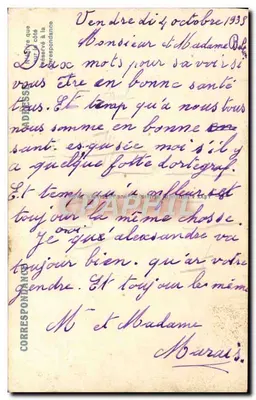 Vendredi 4 octobre 1935
Monsieur et Madame
Deux mots pour savoir si
vous être en bonne santé
tous. Et temp qu'a nous tous
nous somme en bonne
sant. esqusée moi s'il y
a quelque fotte dortograf.
Et temp qu'a ailleur est
toujour la même chosse.
Je qu'e alexandre va
toujour bien. qu'ar votre
gendre. Et toujour le même
Mr et Madame
Marais.
ADRESSE
CORRESPONDANCE
réservé à la
correspondance
CPAPHIL